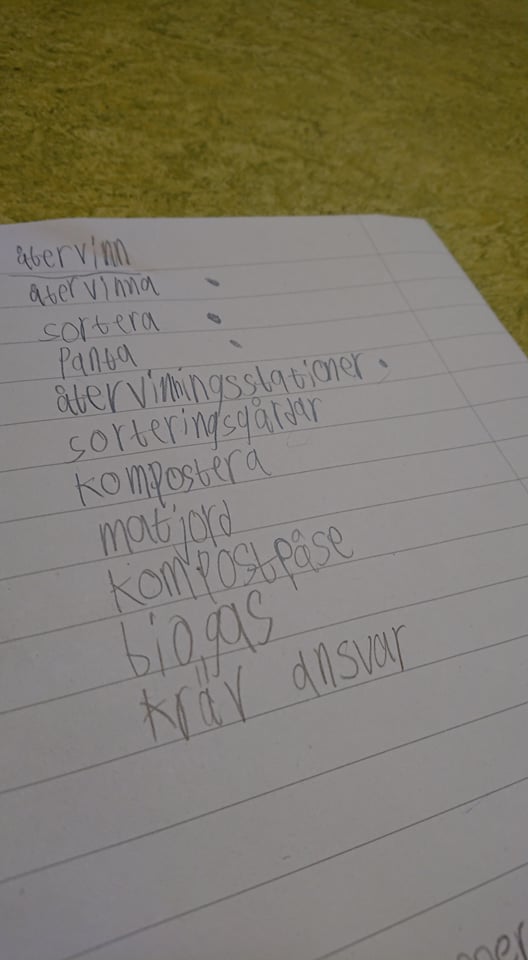 återvinn
återvinna
sortera
Panta
återvinningsstationer
sorteringsgårdar
kompostera
matjord
kompostpåse
biogas
kräv ansvar